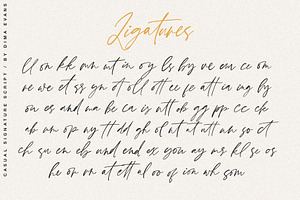 Ligatures
ll on kk um mt in oy ls by ve em cc om
re we et ss yn st oll ott ee fe att ca ug by
ou es and ma be ca is ntt ob gg pp cc ck
ab un op ny tt dd gh ol nt at utt un so ct
ch su en eb und end ex you ay ms kl se os
he or on at ett al oo of ion wh som
CASUAL SIGNATURE SCRIPT - BY DIMA EVANS